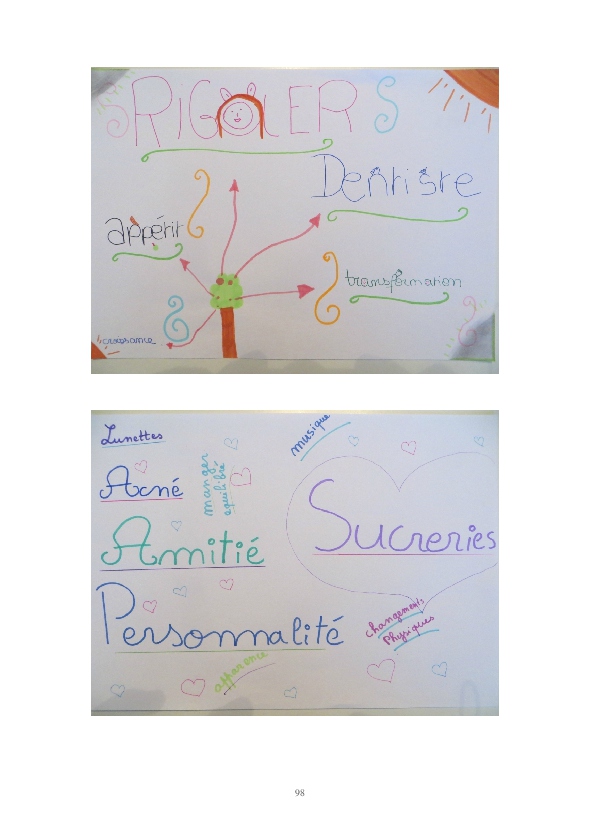 RIGOLER
Dentiste
appétit
transformation
croissance
Lunettes
musique
Acné
manger
équilibré
Sucreries
Amitié
Personnalité
changements
physiques
apparence
98